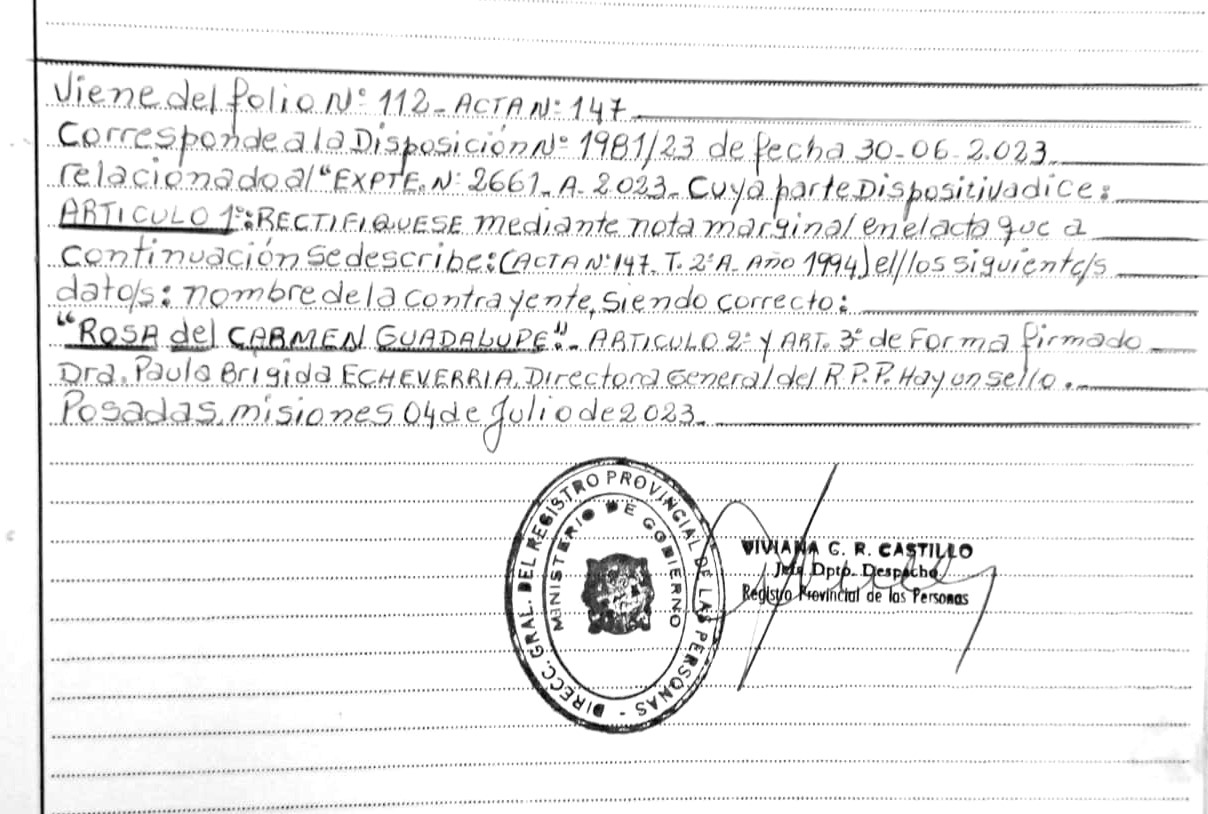 Viene del folio Nº 112_ ACTA Nº 147
Corresponde a la Disposición Nº 1981/23 de fecha 30-06-2.023_
relacionado al "EXPTE. Nº 2661_A_2.023_ Cuya parte Dispositiva dice:
ARTICULO 1º: RECTIFIQUESE mediante nota marginal en el acta que a
continuación se describe: (ACTA Nº 147_ T. 2º A_ Año 1994) el/los siguiente/s
dato/s: nombre de la contrayente, siendo correcto:
"ROSA del CARMEN GUADALUPE"_ ARTICULO 2º y ART. 3º de Forma firmado
Dra. Paula Brigida ECHEVERRIA. Directora General del R.P.P. Hay un sello.
Posadas, misiones 04 de Julio de 2.023_
DIRECC. GRAL. DEL REGISTRO PROVINCIAL DE LAS PERSONAS -
MINISTERIO DE GOBIERNO
VIVIANA G. R. CASTILLO
Jefa Dpto. Despacho
Registro Provincial de las Personas